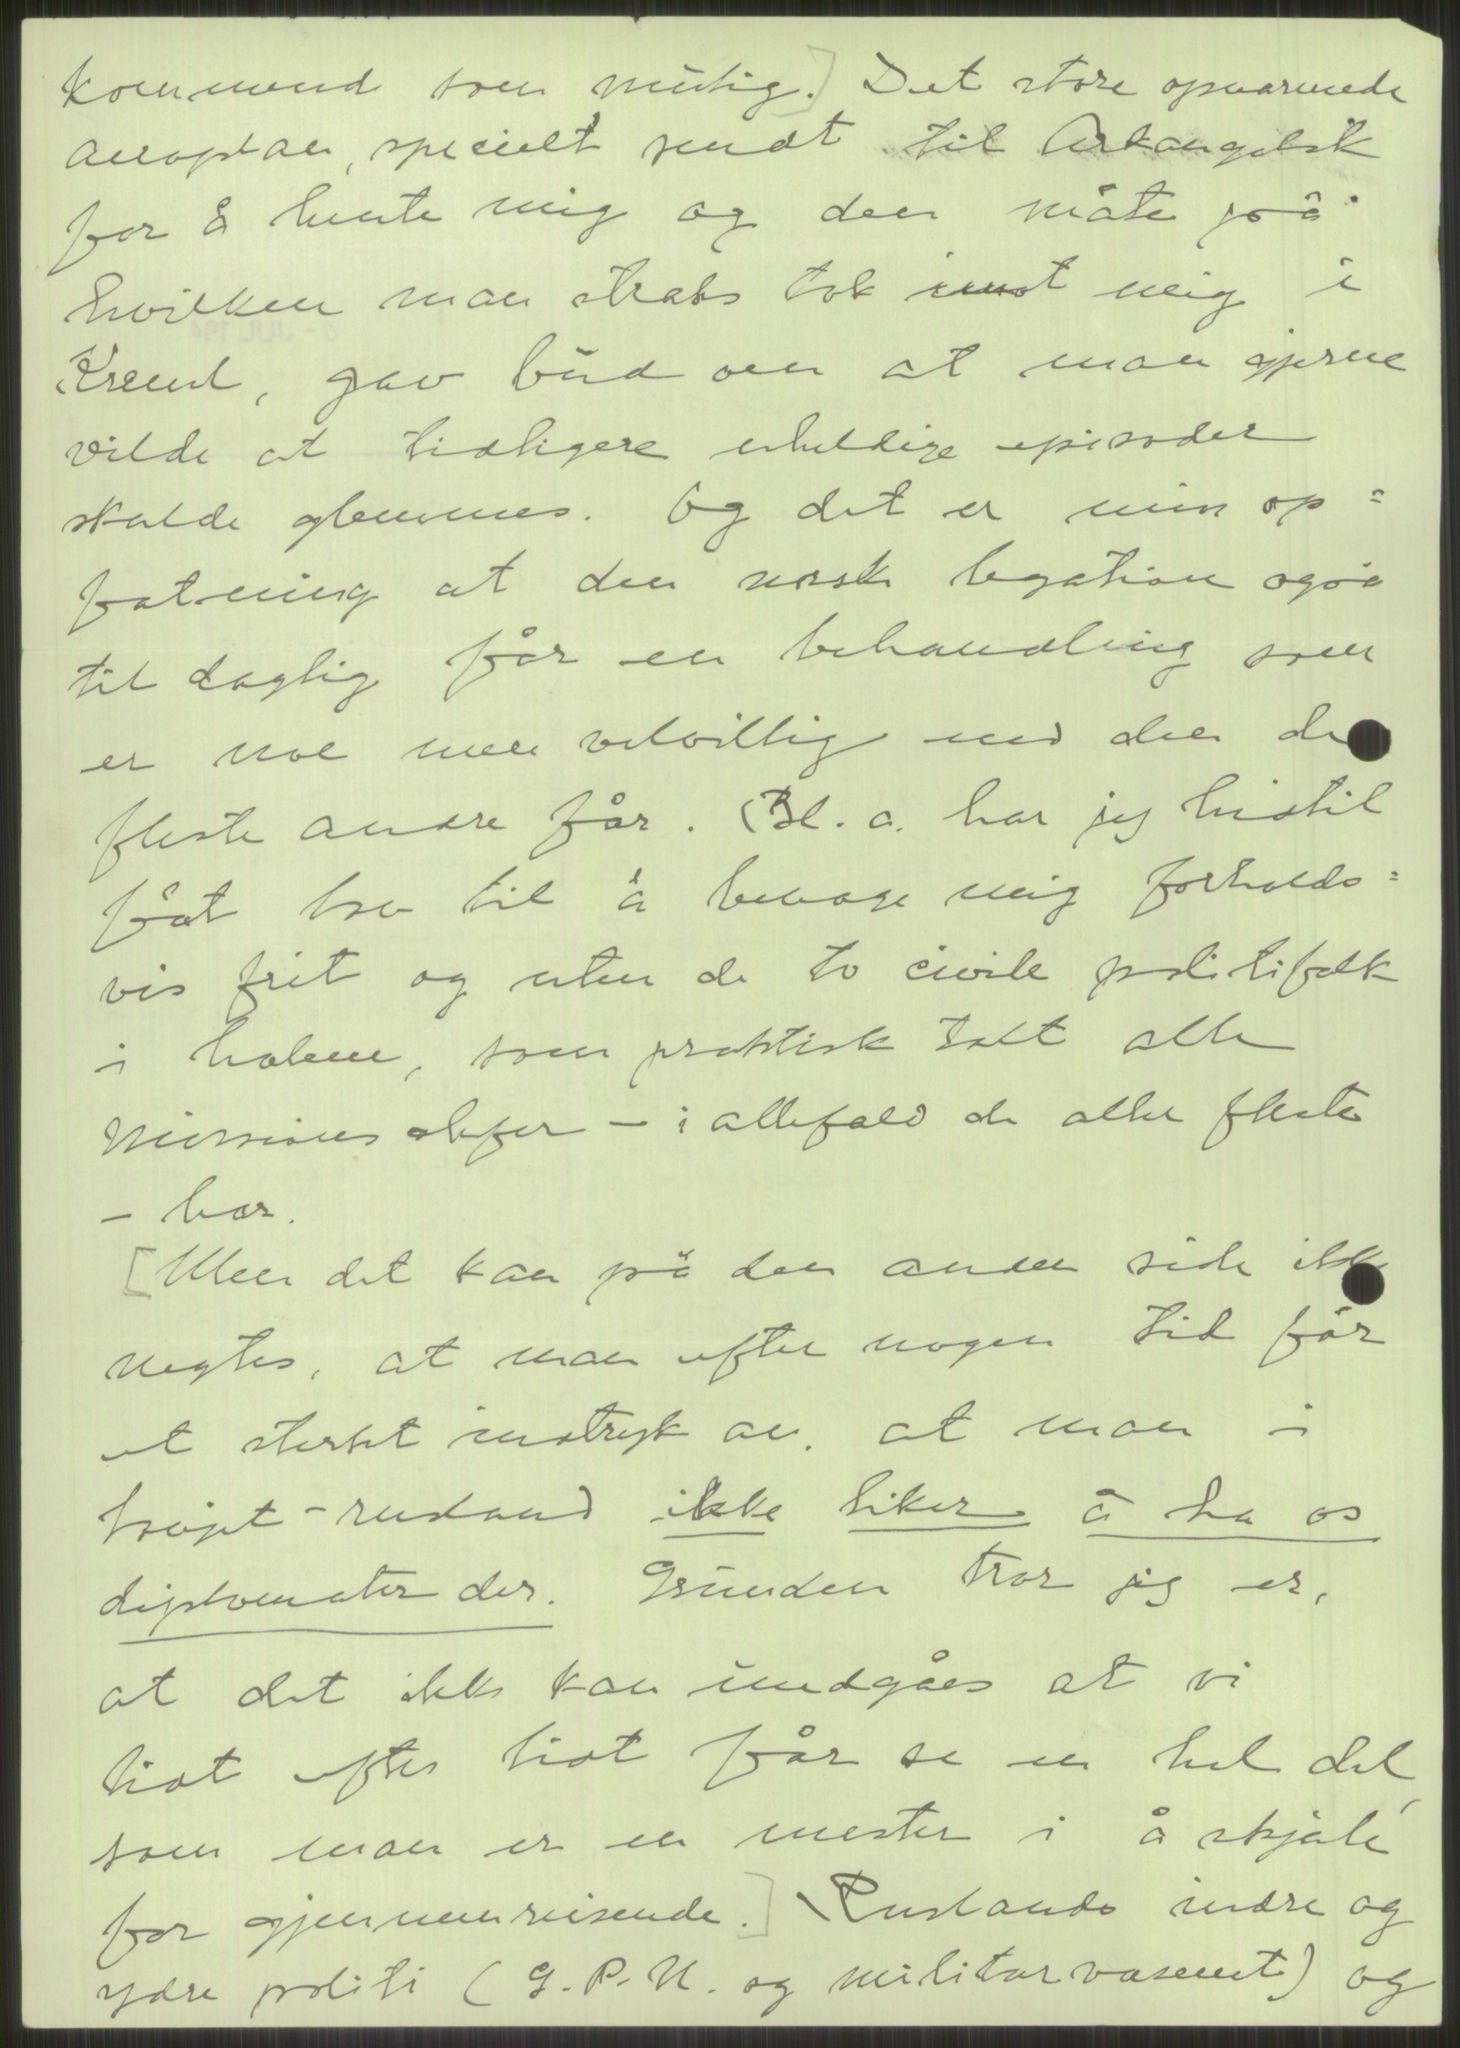 kommend som mulig.] Det store opvarmede
aeroplan, specielt sendt til Arkangelsk
for å hente mig og den måte på
hvilken man straks tok imot mig i
Kreml, gav bud om at man gjerne
vilde at tidligere uheldige episoder
skulde glemmes. Og det er min op=
fatning at den norske legation også
til daglig får en behandling som
er noe mer velvillig end den de
fleste andre får. (Bl. a. har jeg hittil
fåt lov til å bevæge mig forholds=
vis frit og uten de to civile politifolk
i halene, som praktisk talt alle
missionschefer – i allefald de aller fleste
– har.
[Men det kan på den anden side ikke
negtes, at man efter nogen tid får
et sterkt indtryk av, at man i
Sovjet-rusland ikke liker å ha os
diplomater der. Grunden tror jeg er,
at det ikke kan undgåes at vi
litt efter litt får se en hel del,
som man er en mester i å skjule
for gjennemreisende.] Ruslands indre og
ydre politi (G.P.U. og militærvæsenet) og